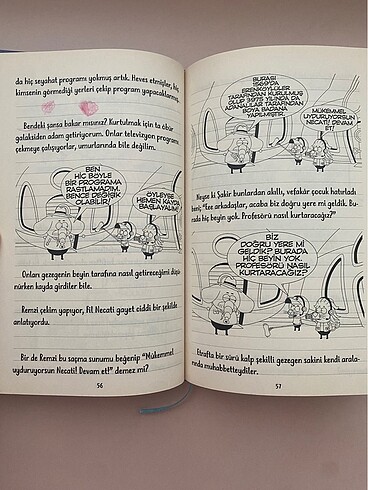 da hiç seyahat programı yokmuş artık. Heves etmişler, hiç
kimsenin görmediği yerleri çekip program yapacaklarmış.
Bendeki şansa bakar mısınız? Kurtulmak için ta öbür
galaksiden adam getiriyorum. Onlar televizyon programı
çekmeye çalışıyorlar, umurlarında bile değilim.
BEN
HİÇ BÖYLE
BİR PROGRAMA
RASTLAMADIM,
BENCE DEĞİŞİK
OLABİLİR!
ÖYLEYSE
HEMEN KAYDA
BAŞLAYALIM!
Onları gezegenin beyin tarafına nasıl getireceğimi düşü-
nürken kayda girdiler bile.
Remzi çekim yapıyor, Fil Necati gayet ciddi bir şekilde
anlatıyordu.
Bir de Remzi bu saçma sunumu beğenip “Mükemmel
uyduruyorsun Necati! Devam et!” demez mi?
56
BURASI
1569'DA
ERENKÖYLÜLER
TARAFINDAN KURULMUŞ
OLUP 3975 YILINDA DA
ADANALILAR TARAFINDAN
BOYA BADANA
YAPILMIŞTIR.
MÜKEMMEL
UYDURUYORSUN
NECATİ! DEVAM
ET!
Neyse ki Şakir bunlardan akıllı, vefakâr çocuk hatırladı
beni; “Ee arkadaşlar, acaba biz doğru yere mi geldik. Bu-
rada hiç beyin yok. Profesörü nasıl kurtaracağız?”
BİZ
DOĞRU YERE Mİ
GELDİK? BURADA
HİÇ BEYİN YOK.
PROFESÖRÜ NASIL
KURTARACAĞIZ?
Etrafta bir sürü kalp şekilli gezegen sakini kendi arala-
rında muhabbetteydiler.
57